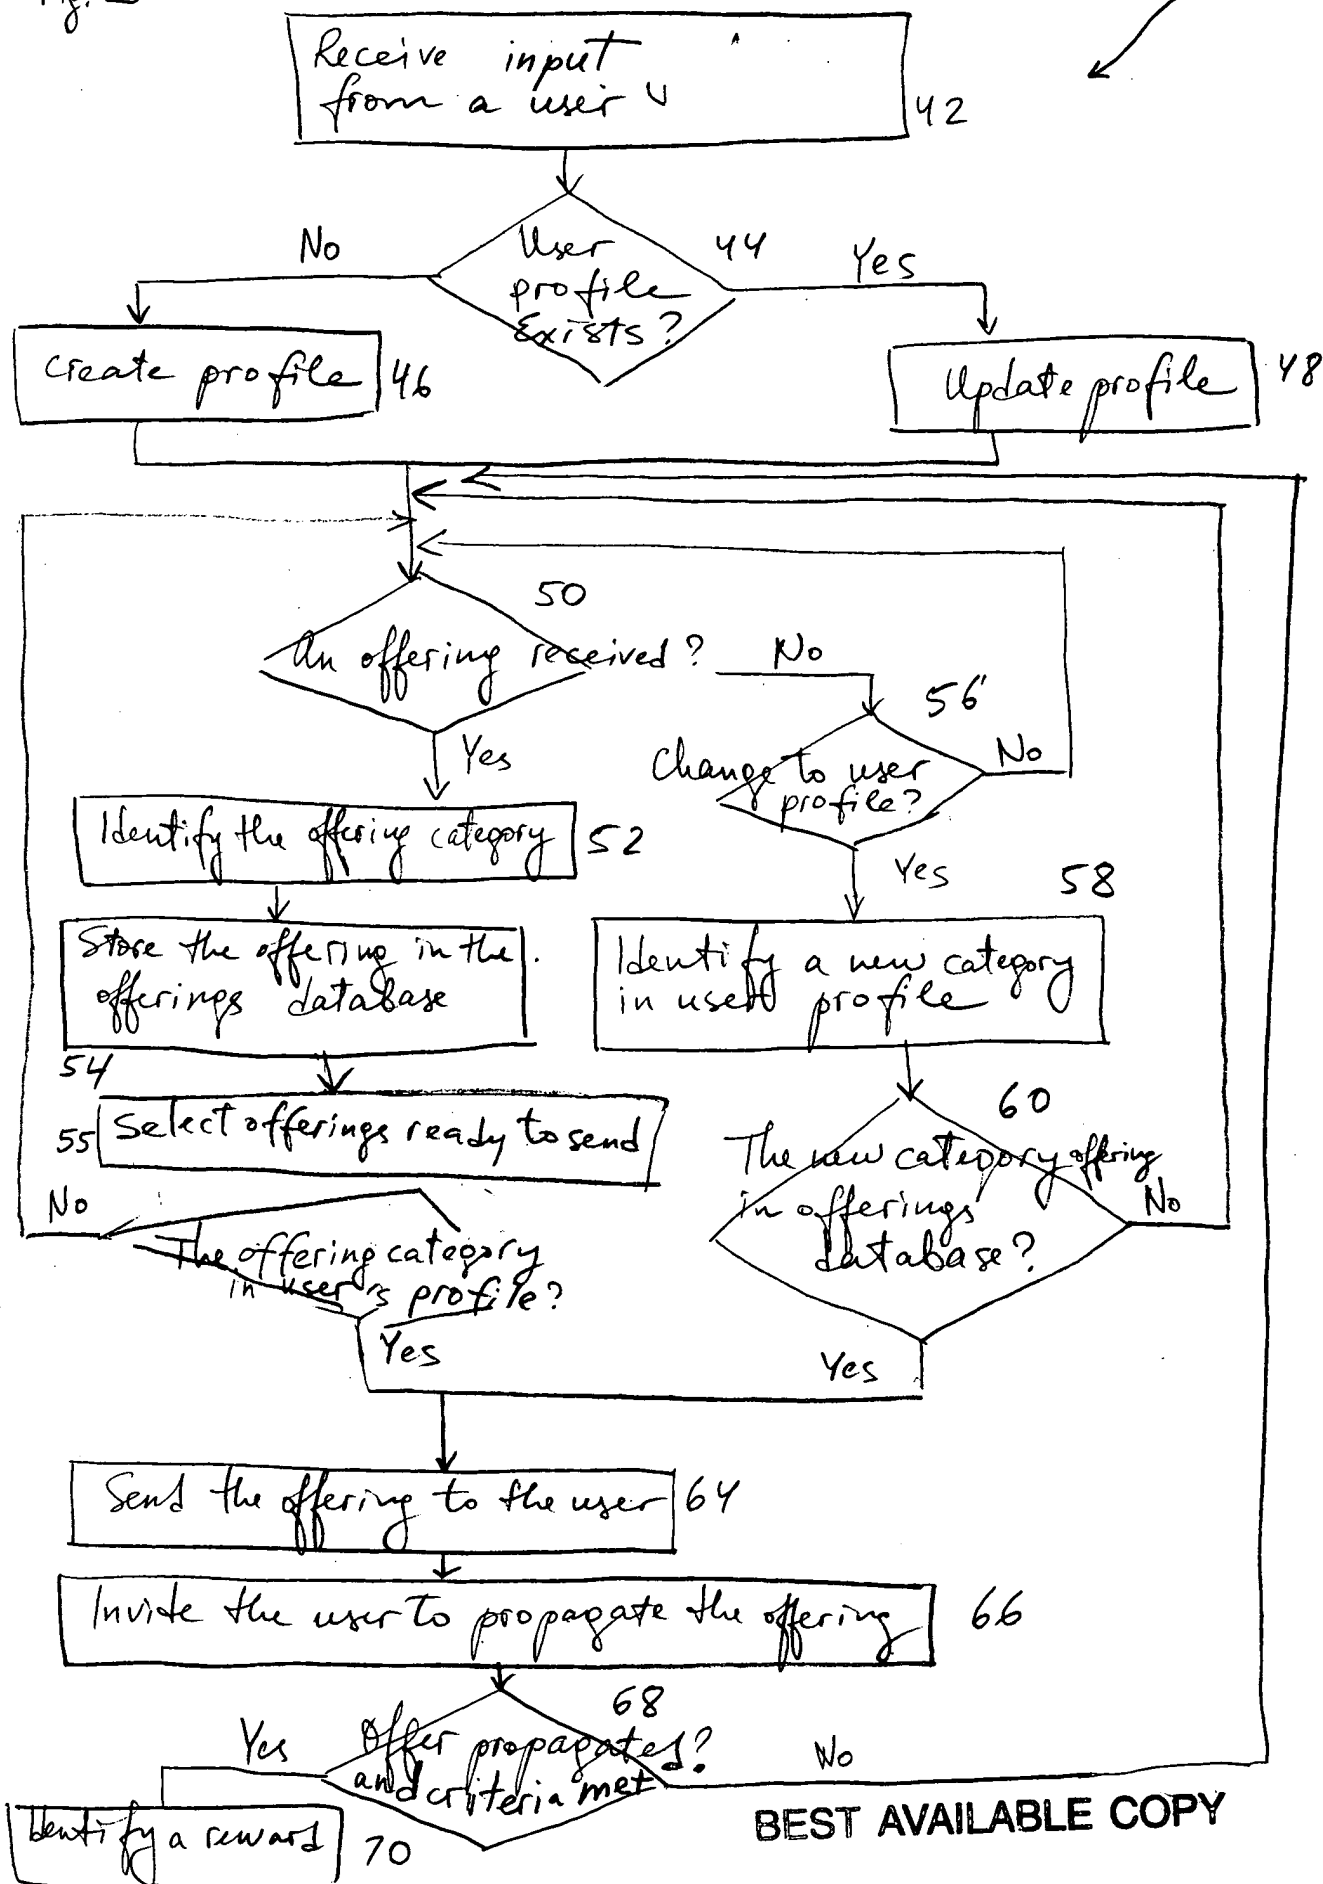 Fig.
Receive input
from a user
42
User
profile
Exists?
44
No
Yes
Create profile
46
Update profile
48
50
An offering received?
No
Yes
56
Change to user
profile?
No
Yes
Identify the offering category
52
58
Store the offering in the
offerings database
54
Identify a new category
in user profile
55
Select offerings ready to send
60
The new category offering
in offerings
database?
No
No
The offering category
in user's profile?
Yes
Yes
Send the offering to the user
64
Invite the user to propagate the offering
66
68
Offer propagated?
and criteria met
Yes
No
Identify a reward
70
BEST AVAILABLE COPY